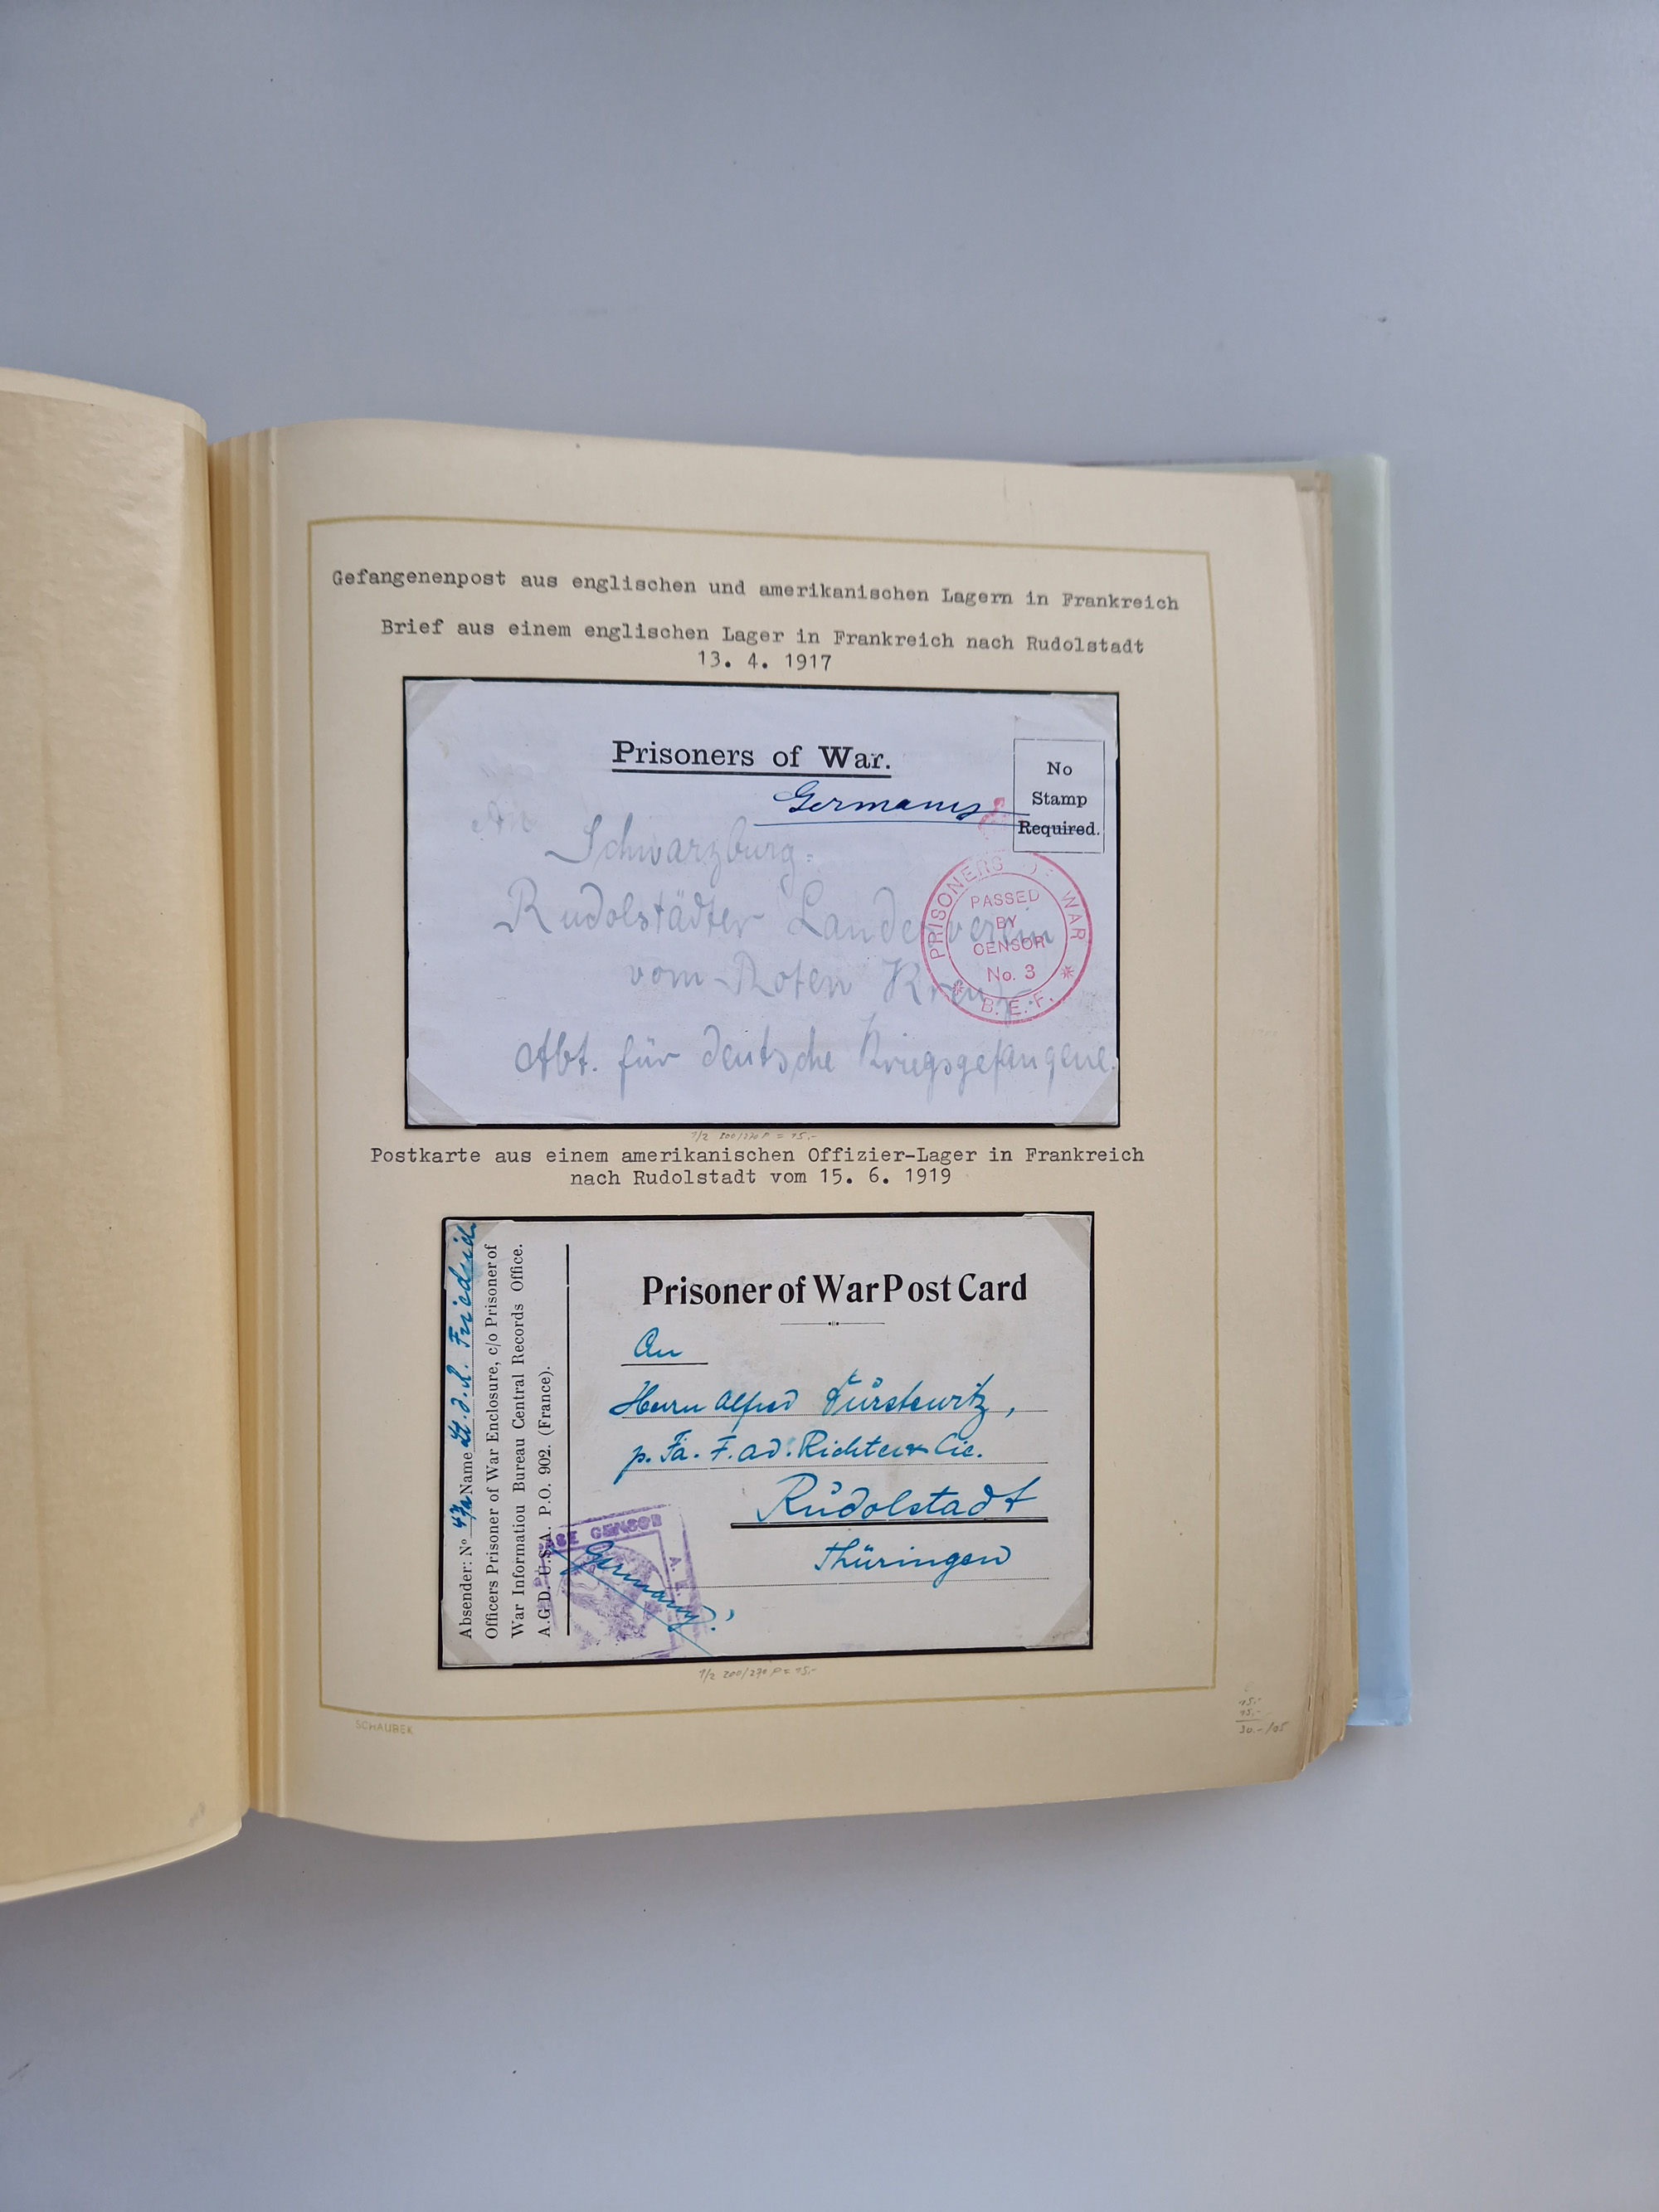 Gefangenenpost aus englischen und amerikanischen Lagern in Frankreich
Brief aus einem englischen Lager in Frankreich nach Rudolstadt
13. 4. 1917
Prisoners of War.
Germany
No
Stamp
Required.
An
Schwarzburg-
Rudolstädter Landesverein
vom Roten Kreuz
Abt. für deutsche Kriegsgefangene.
PRISONERS OF WAR
PASSED
BY
CENSOR
No. 3
* B.E.F. *
1/2 200/270 P = 15,-
Postkarte aus einem amerikanischen Offizier-Lager in Frankreich
nach Rudolstadt vom 15. 6. 1919
Absender: No Name Lt. d. R. Friedrich
Officers Prisoner of War Enclosure, c/o Prisoner of
War Information Bureau Central Records Office.
A.G.D. U.S.A. P.O. 902. (France).
Prisoner of War Post Card
An
Herrn Alfred Fürstewitz,
p. Fa. F. Ad. Richter & Cie.
Rudolstadt
Thüringen
BASE CENSOR
A.
Germany!
1/2 200/270 P = 15,-
SCHAUBEK
15,-
15,-
30.-/05